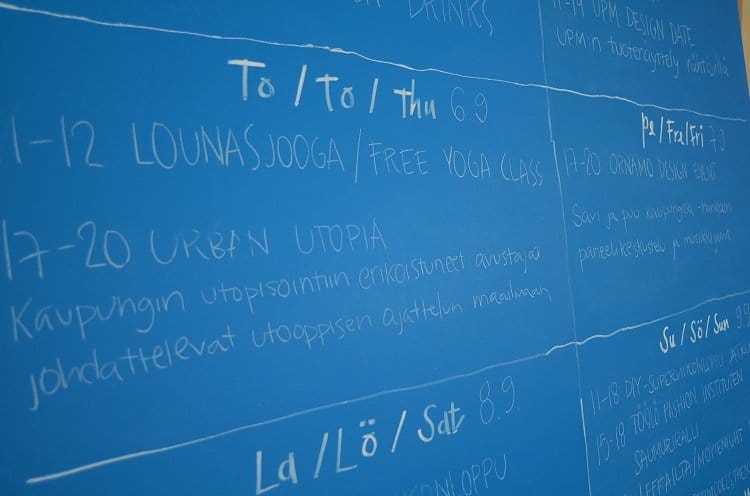 DRINKS
To / To / Thu 6 9
11-12 LOUNASJOOGA / FREE YOGA CLASS
17-20 URBAN UTOPIA
Kaupungin utopisointiin erikoistuneet avustajat
johdattelevat utooppisen ajattelun maailmaan,
La / Lö / Sat 8.9.
UPM DESIGN DATE
UPM:n tuotenäyttely nähtävillä
pe / Fre / Fri 7.9
17-20 ORNAMO DESIGN EVENT
Savi ja puu kaupungissa
paneelikeskustelu ja
Su / Sö / Sun
11-18
15-18 TÖÖLÖ FASHION INSTITUTEN
SAUMURIRALLI